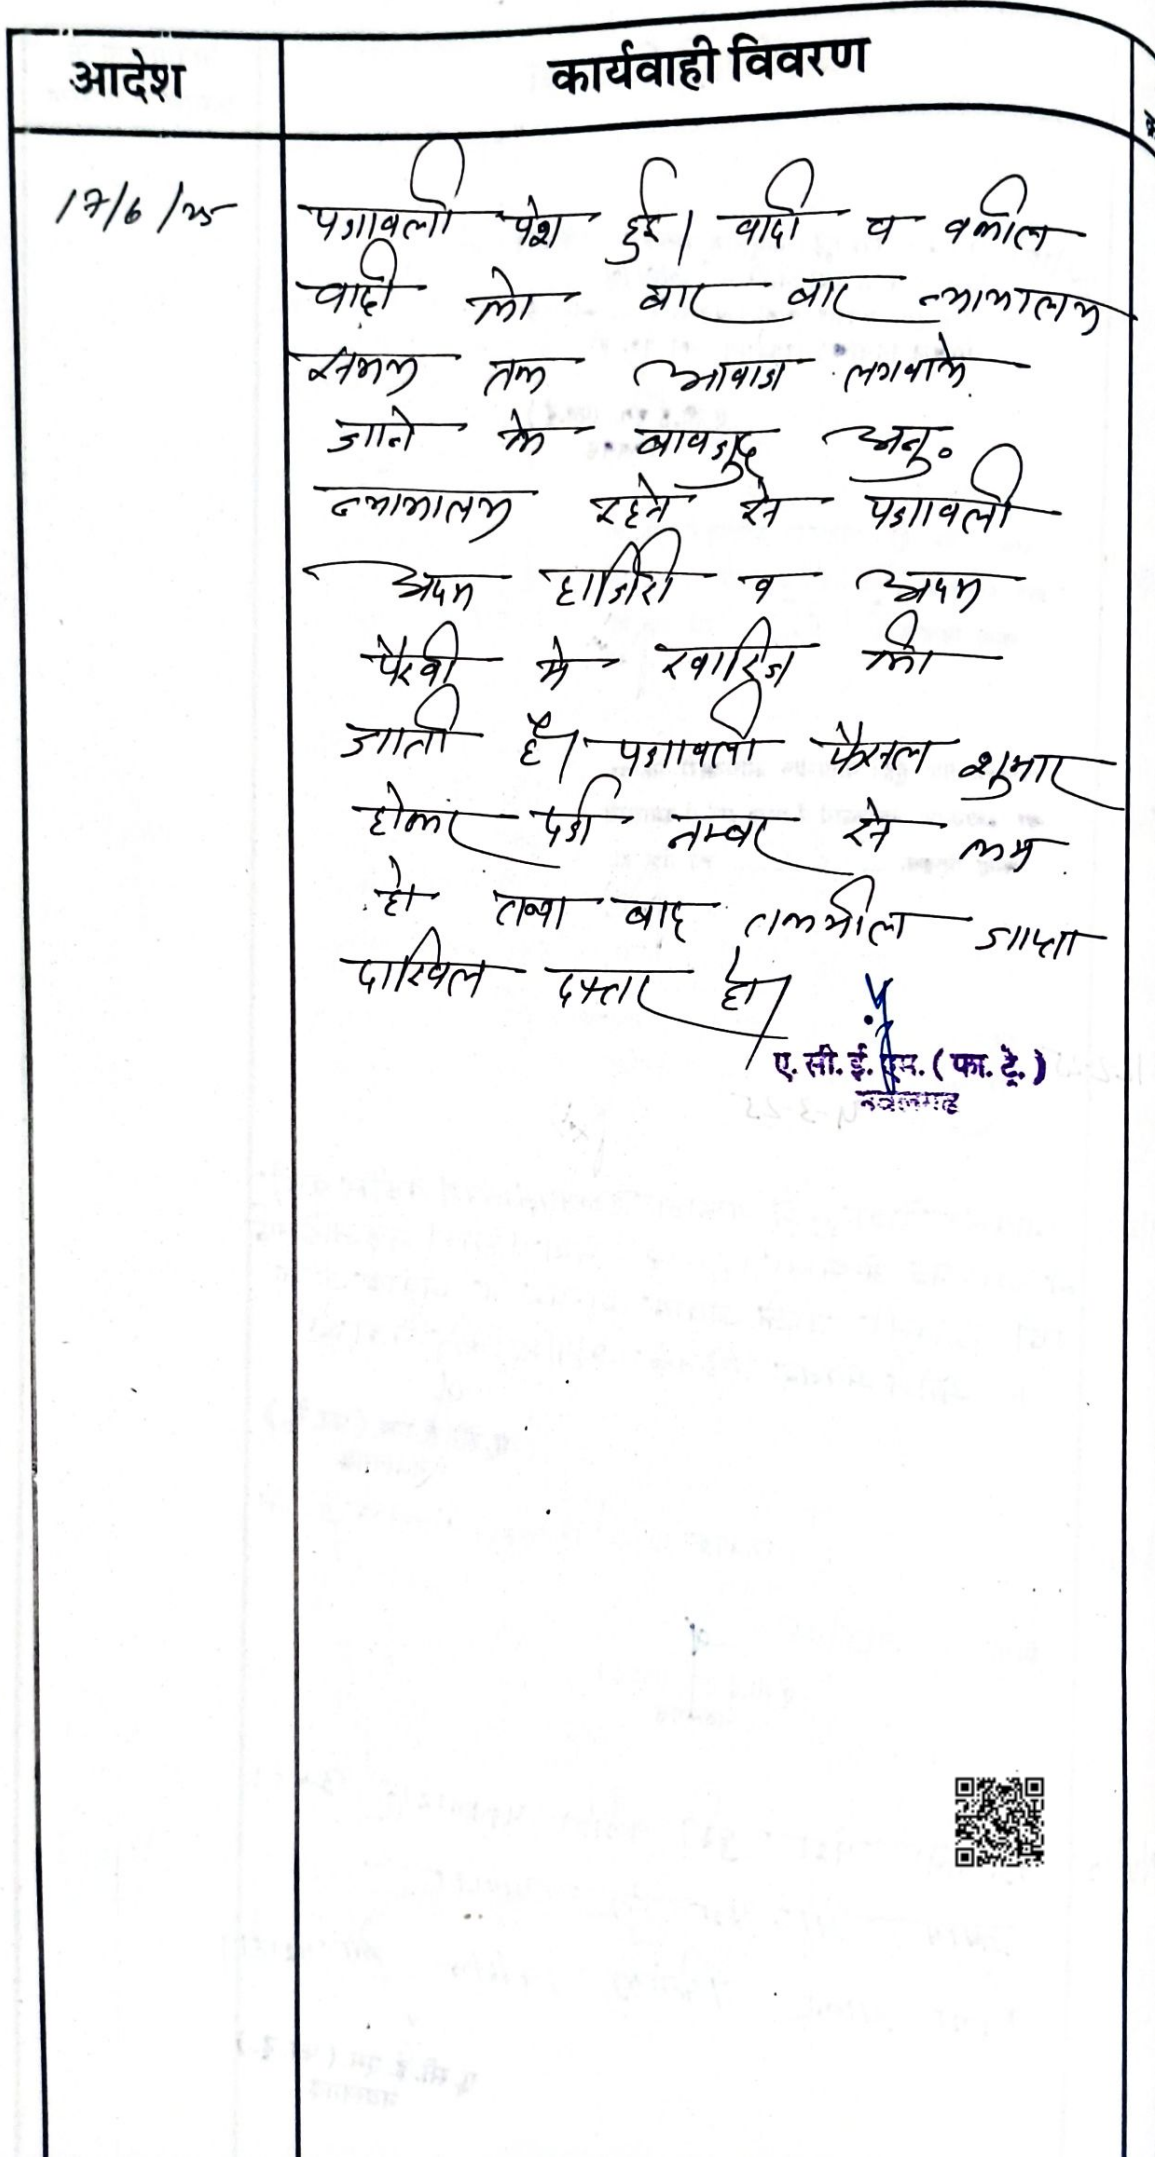 आदेश कार्यवाही विवरण
17/6/25 पत्रावली पेश हुई। वादी व वकील
वादी को बार बार न्यायालय
समय तक आवाज लगवाये
जाने के बावजूद अनु॰
न्यायालय रहने से पत्रावली
अदम हाजिरी व अदम
पैरवी मे खारिज की
जाती है। पत्रावली फैसल शुमार
होकर दर्ज नम्बर से कम
हो तथा बाद तकमील जाप्ता
दाखिल दफ्तर हो।
ए. सी. ई. एम. ( फा. ट्रे. )
नवलगढ